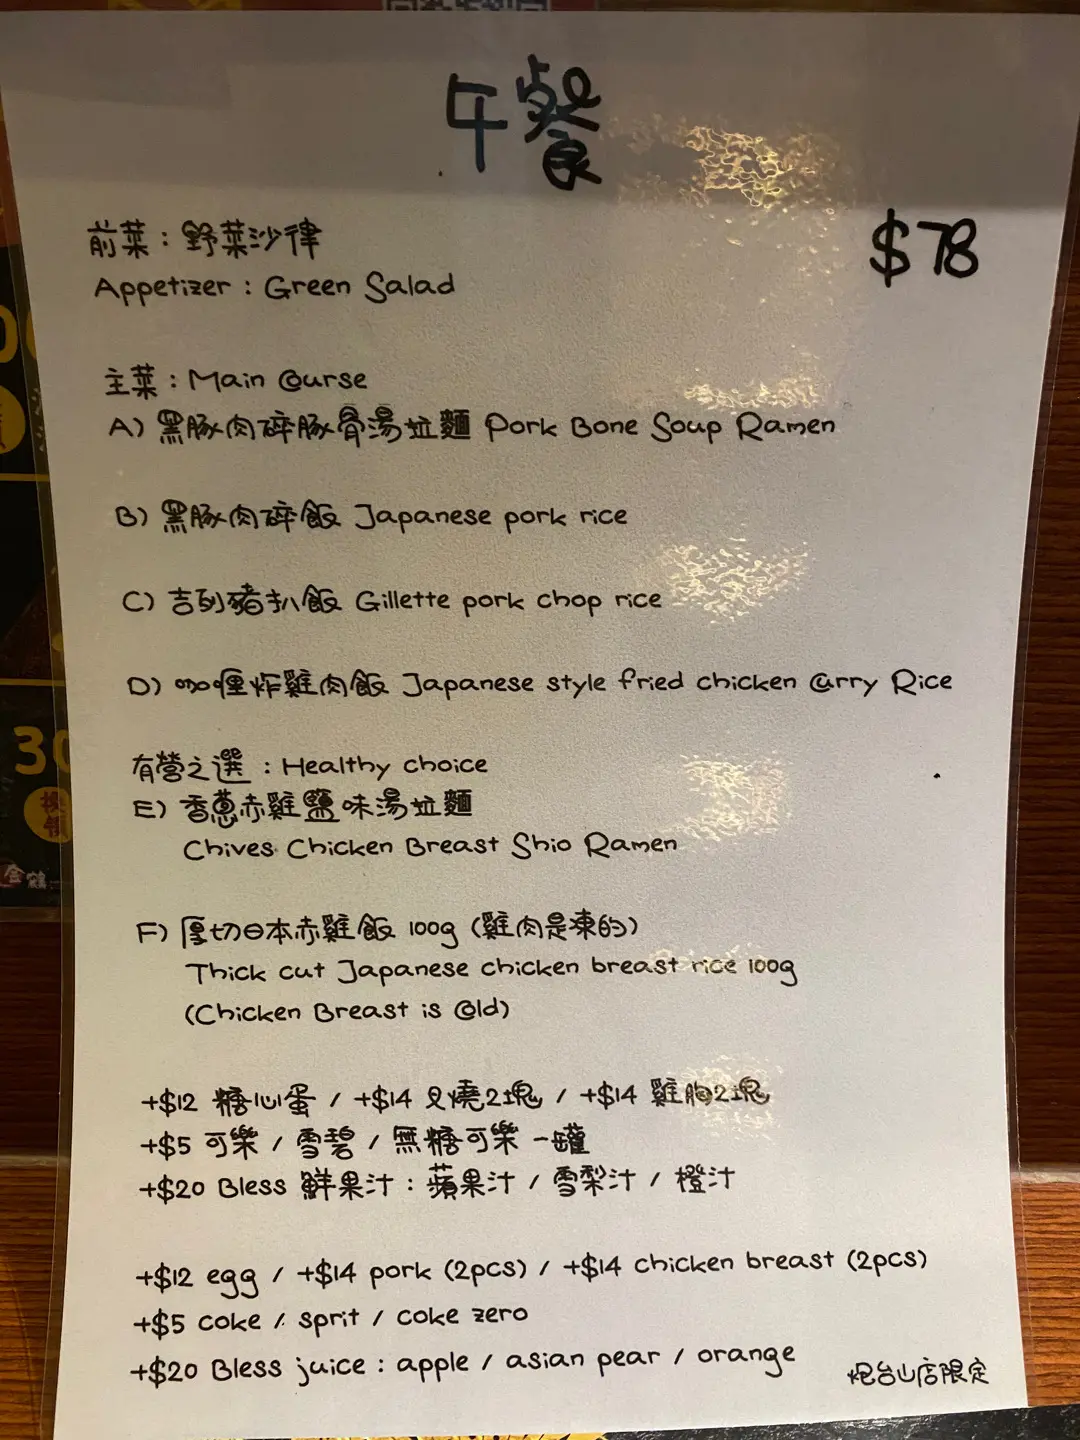 午餐
$78
前菜：野菜沙律
Appetizer : Green Salad
主菜：Main Course
A) 黑豚肉碎豚骨湯拉麵 Pork Bone Soup Ramen
B) 黑豚肉碎飯 Japanese pork rice
C) 吉列豬扒飯 Gillette pork chop rice
D) 咖喱炸雞肉飯 Japanese style fried chicken Curry Rice
有營之選：Healthy choice
E) 香蔥赤雞鹽味湯拉麵
Chives Chicken Breast Shio Ramen
F) 厚切日本赤雞飯 100g (雞肉是凍的)
Thick cut Japanese chicken breast rice 100g
(Chicken Breast is Cold)
+$12 糖心蛋 / +$14 叉燒2塊 / +$14 雞胸2塊
+$5 可樂 / 雪碧 / 無糖可樂 一罐
+$20 Bless 鮮果汁：蘋果汁 / 雪梨汁 / 橙汁
+$12 egg / +$14 pork (2pcs) / +$14 chicken breast (2pcs)
+$5 coke / sprit / coke zero
+$20 Bless juice : apple / asian pear / orange
炮台山店限定
30